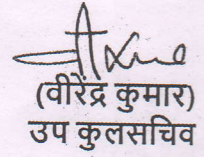 (वीरेंद्र कुमार)
उप कुलसचिव